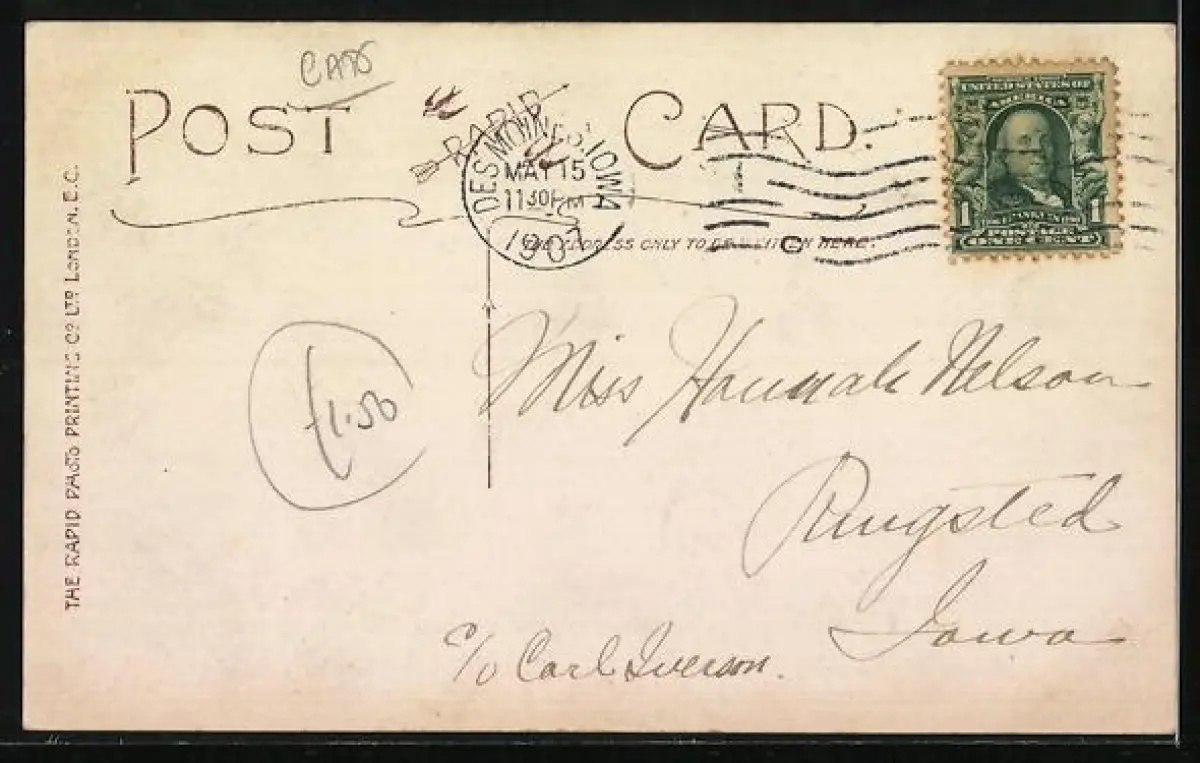 CATS
POST CARD.
RAPID
DES MOINES, IOWA
MAY 15
1130PM
1907
UNITED STATES OF
AMERICA
1 1
POSTAGE
ONE CENT
THE ADDRESS ONLY TO BE WRITTEN HERE.
£1.50
Miss Hannah Nelson
Ringsted
Iowa
c/o Carl Iverson.
THE RAPID PHOTO PRINTING Co LTD LONDON, E.C.